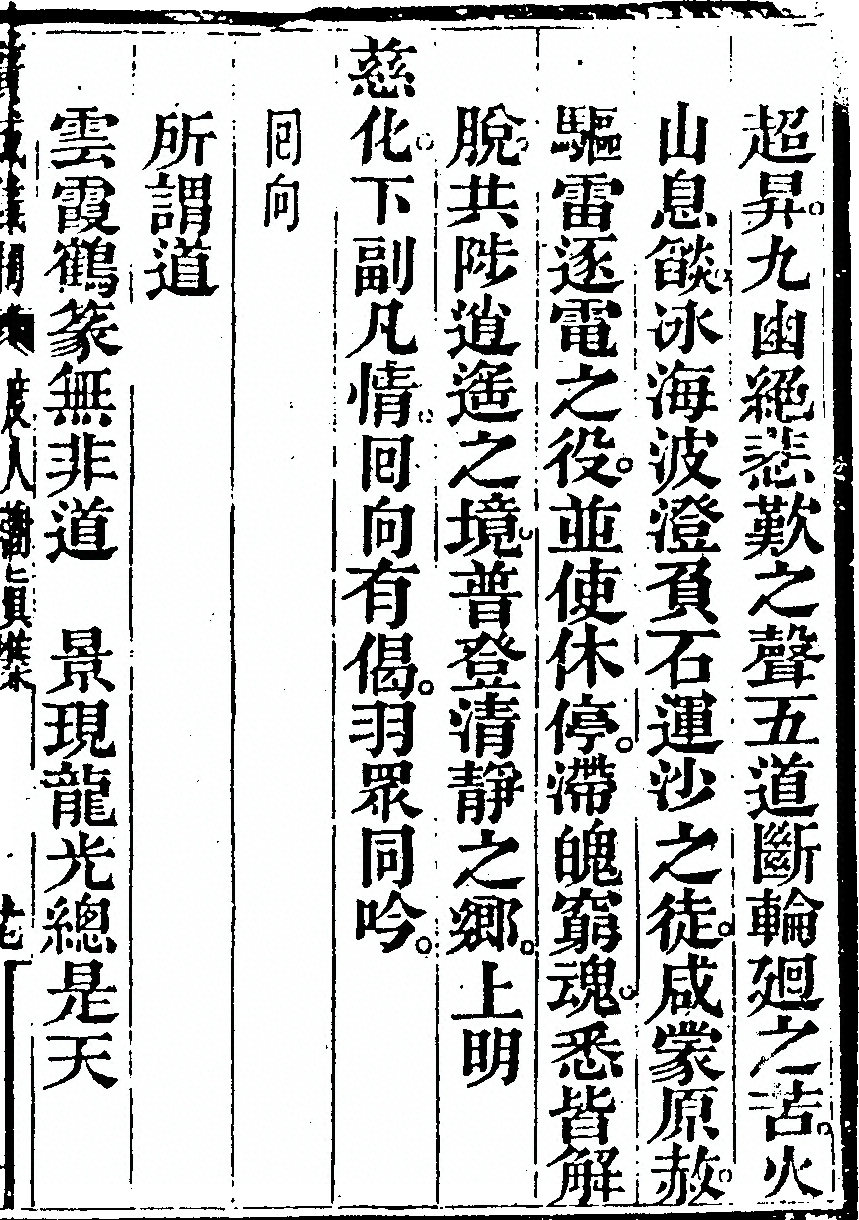 超昇。九幽絕悲歎之聲五道斷輪廻之苦。火
山息燄。冰海波澄負石運沙之徒。咸蒙原赦。
驅雷逐電之役。並使休停。滯魄窮魂。悉皆解
脫。共陟逍遙之境。普登清靜之鄉。上明
慈化。下副凡情。回向有偈。羽眾同吟。
回向
所謂道
雲霞鶴篆無非道　景現龍光總是天